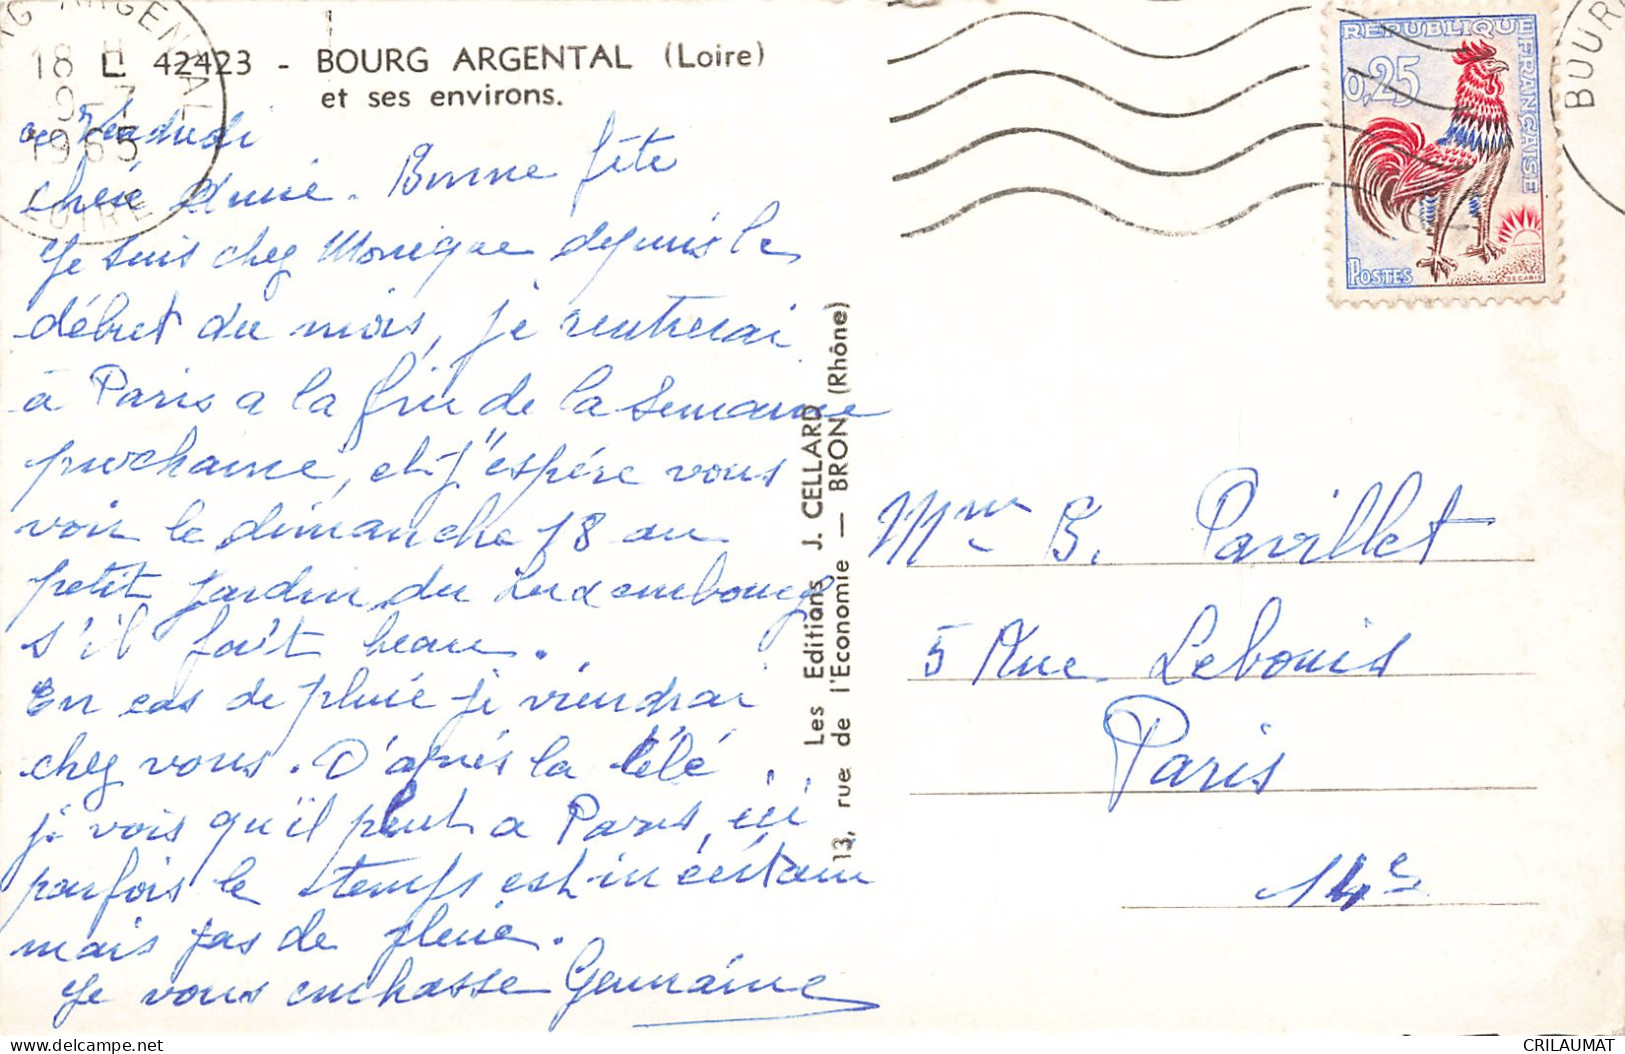 BOURG ARGENTAL
LOIRE
18 H
9 - 7
1965
L 42423 - BOURG ARGENTAL (Loire)
et ses environs.
ce Vendredi
Chère Annie. Bonne fête
Je suis chez Monique depuis le
début du mois, je rentrerai
à Paris a la fin de la semaine
prochaine, et j'espère vous
voir le dimanche 18 au
petit jardin du Luxembourg
s'il fait beau.
En cas de pluie je viendrai
chez vous. D'après la télé
je vois qu'il pleut a Paris, ici
parfois le temps est incertain
mais pas de pluie.
Je vous embrasse Germaine
Les Editions J. CELLARD
13, rue de l'Economie — BRON (Rhône)
REPUBLIQUE FRANÇAISE
0,25
POSTES
DECARIS
BOUR
Mme B. Pavillet
5 Rue Lebouis
Paris
14e
delcampe.net
CRILAUMAT